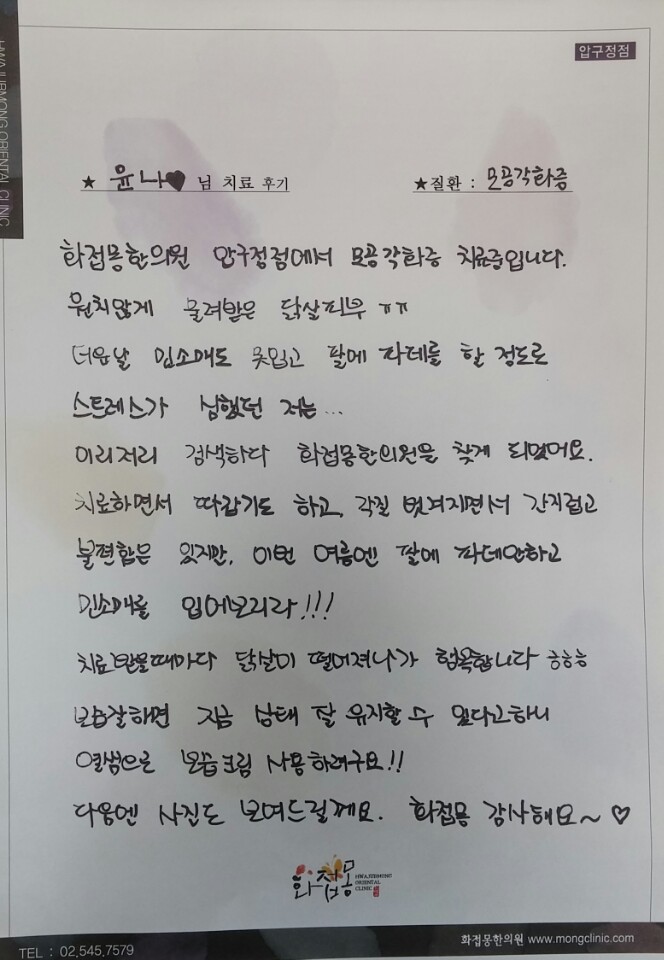 압구정점
HWAJUBMONG ORIENTAL CLINIC
★ 윤나♥ 님 치료 후기 ★질환 : 모공각화증
화접몽한의원 압구정점에서 모공각화증 치료중입니다.
원치않게 물려받은 닭살피부 ㅠㅠ
더운날 민소매도 못입고 팔에 파데를 할 정도로
스트레스가 심했던 저는...
이리저리 검색하다 화접몽한의원을 찾게 되었어요.
치료하면서 따갑기도 하고, 각질 벗겨지면서 간지럽고
불편함은 있지만, 이번 여름엔 팔에 파데안하고
민소매를 입어보리라!!!
치료받을때마다 닭살이 떨어져나가 행복합니다 ㅎㅎㅎ
보습잘하면 지금 상태 잘 유지할 수 있다고하니
열씸으로 보습크림 사용하려구요!!
다음엔 사진도 보여드릴께요. 화접몽 감사해요~ ♡
화접몽
HWAJUBMONG
ORIENTAL
CLINIC
TEL : 02.545.7579
화접몽한의원 www.mongclinic.com